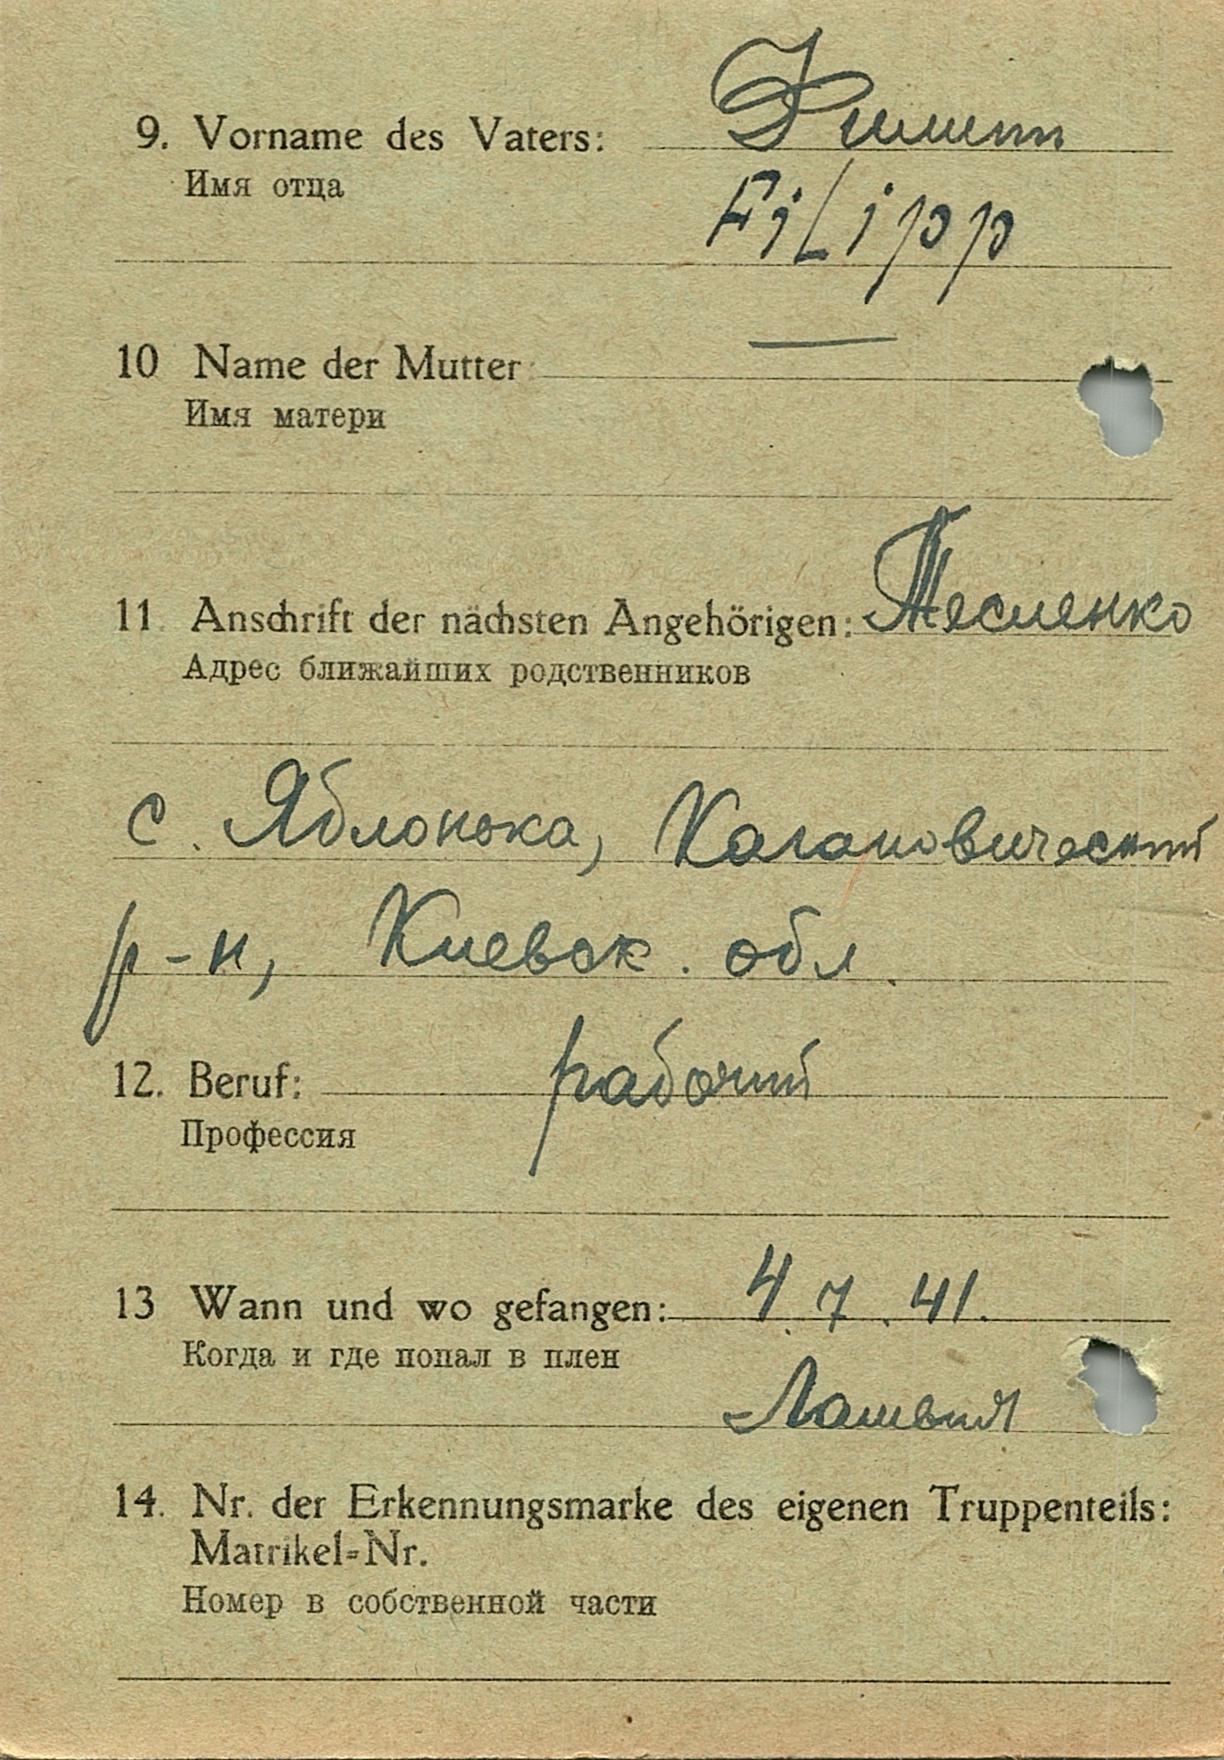 9. Vorname des Vaters: Филипп
Имя отца
FiLipp
10 Name der Mutter —
Имя матери
11 Anschrift der nächsten Angehörigen: Тесленко
Адрес ближайших родственников
с. Яблонька, Кагановический
р-н, Киевск. обл.
12. Beruf: рабочий
Профессия
13 Wann und wo gefangen: 4.7.41.
Когда и где попал в плен
Латвия
14. Nr. der Erkennungsmarke des eigenen Truppenteils:
Matrikel=Nr.
Номер в собственной части